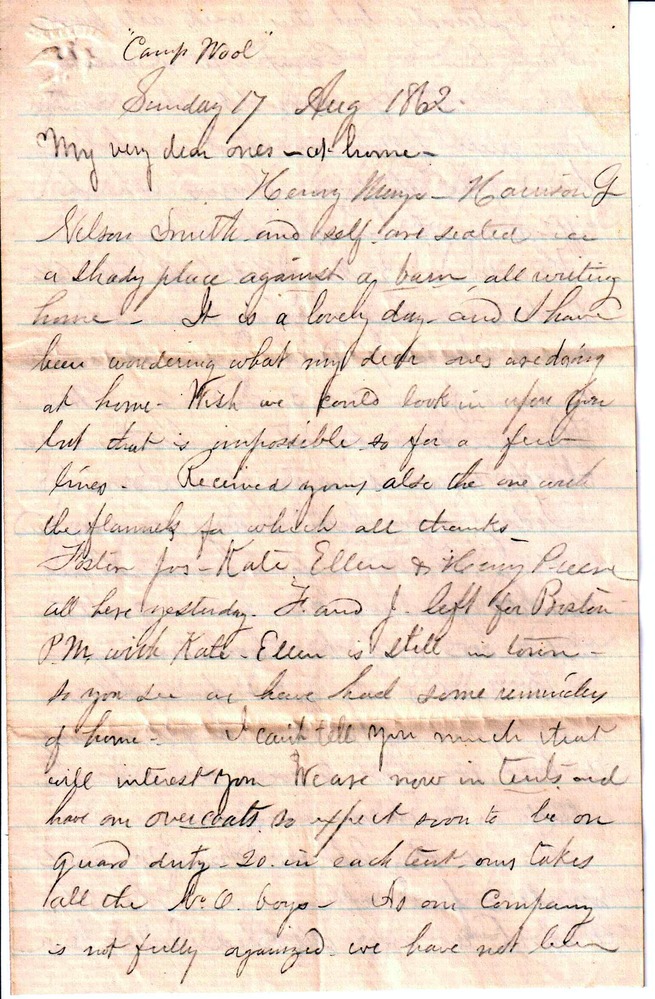 "Camp Wool"
Sunday 17 Aug 1862.
My very dear ones - at home -
Henry - Harrison G
Nelson Smith and self are seated in
a shady place against a barn all writing
home - It is a lovely day - and I have
been wondering what my dear ones are doing
at home - Wish we could look in upon you
but that is impossible so for a few
lines - Received yours also the one with
the flannels for which all thanks
Foster Jos - Kate Ellen & Henry
all here yesterday. F. and J. left for Boston
P.M. with Kate - Ellen is still in town -
so you see we have had some reminders
of home - I can't tell you much that
will interest you We are now in tents and
have our overcoats so expect soon to be on
guard duty - 20 in each tent - ours takes
all the boys - As our Company
is not fully organized we have not been